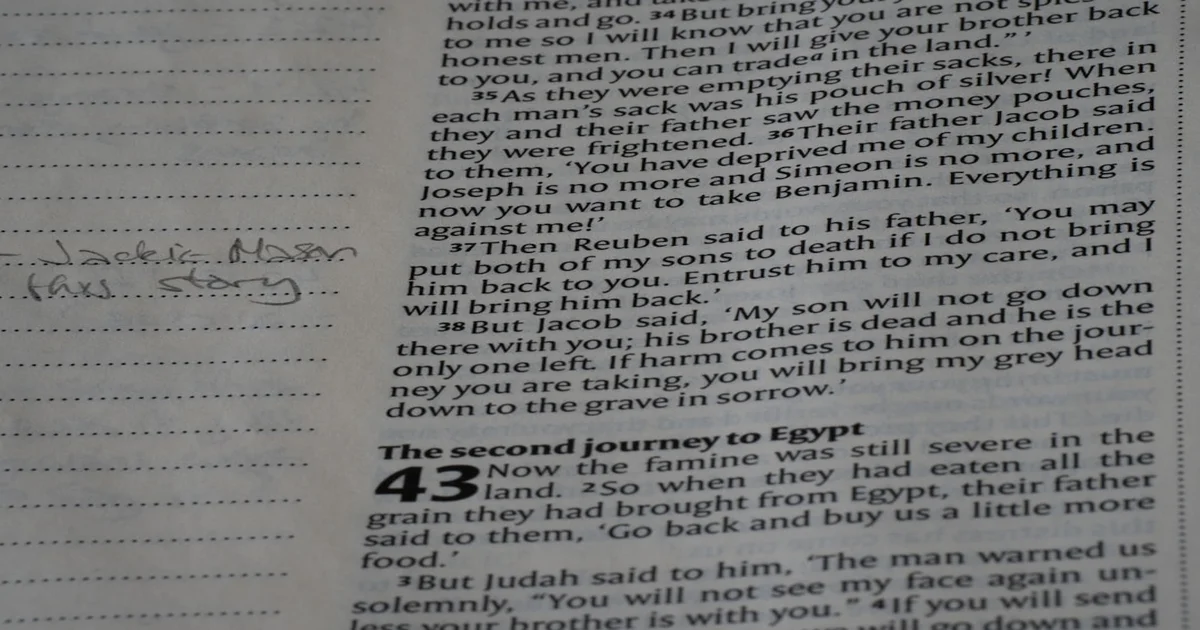 with me, and
holds and go. 34 But bring
to me so I will know that you are not
honest men. Then I will give your brother back
to you, and you can tradeᵃ in the land.” ’
35 As they were emptying their sacks, there in
each man’s sack was his pouch of silver! When
they and their father saw the money pouches,
they were frightened. 36 Their father Jacob said
to them, ‘You have deprived me of my children.
Joseph is no more and Simeon is no more, and
now you want to take Benjamin. Everything is
against me!’
37 Then Reuben said to his father, ‘You may
put both of my sons to death if I do not bring
him back to you. Entrust him to my care, and I
will bring him back.’
38 But Jacob said, ‘My son will not go down
there with you; his brother is dead and he is the
only one left. If harm comes to him on the jour-
ney you are taking, you will bring my grey head
down to the grave in sorrow.’
The second journey to Egypt
43 Now the famine was still severe in the
land. 2 So when they had eaten all the
grain they had brought from Egypt, their father
said to them, ‘Go back and buy us a little more
food.’
3 But Judah said to him, ‘The man warned us
solemnly, “You will not see my face again un-
less your brother is with you.” 4 If you will send
will go down and
- Jackie Mason
story